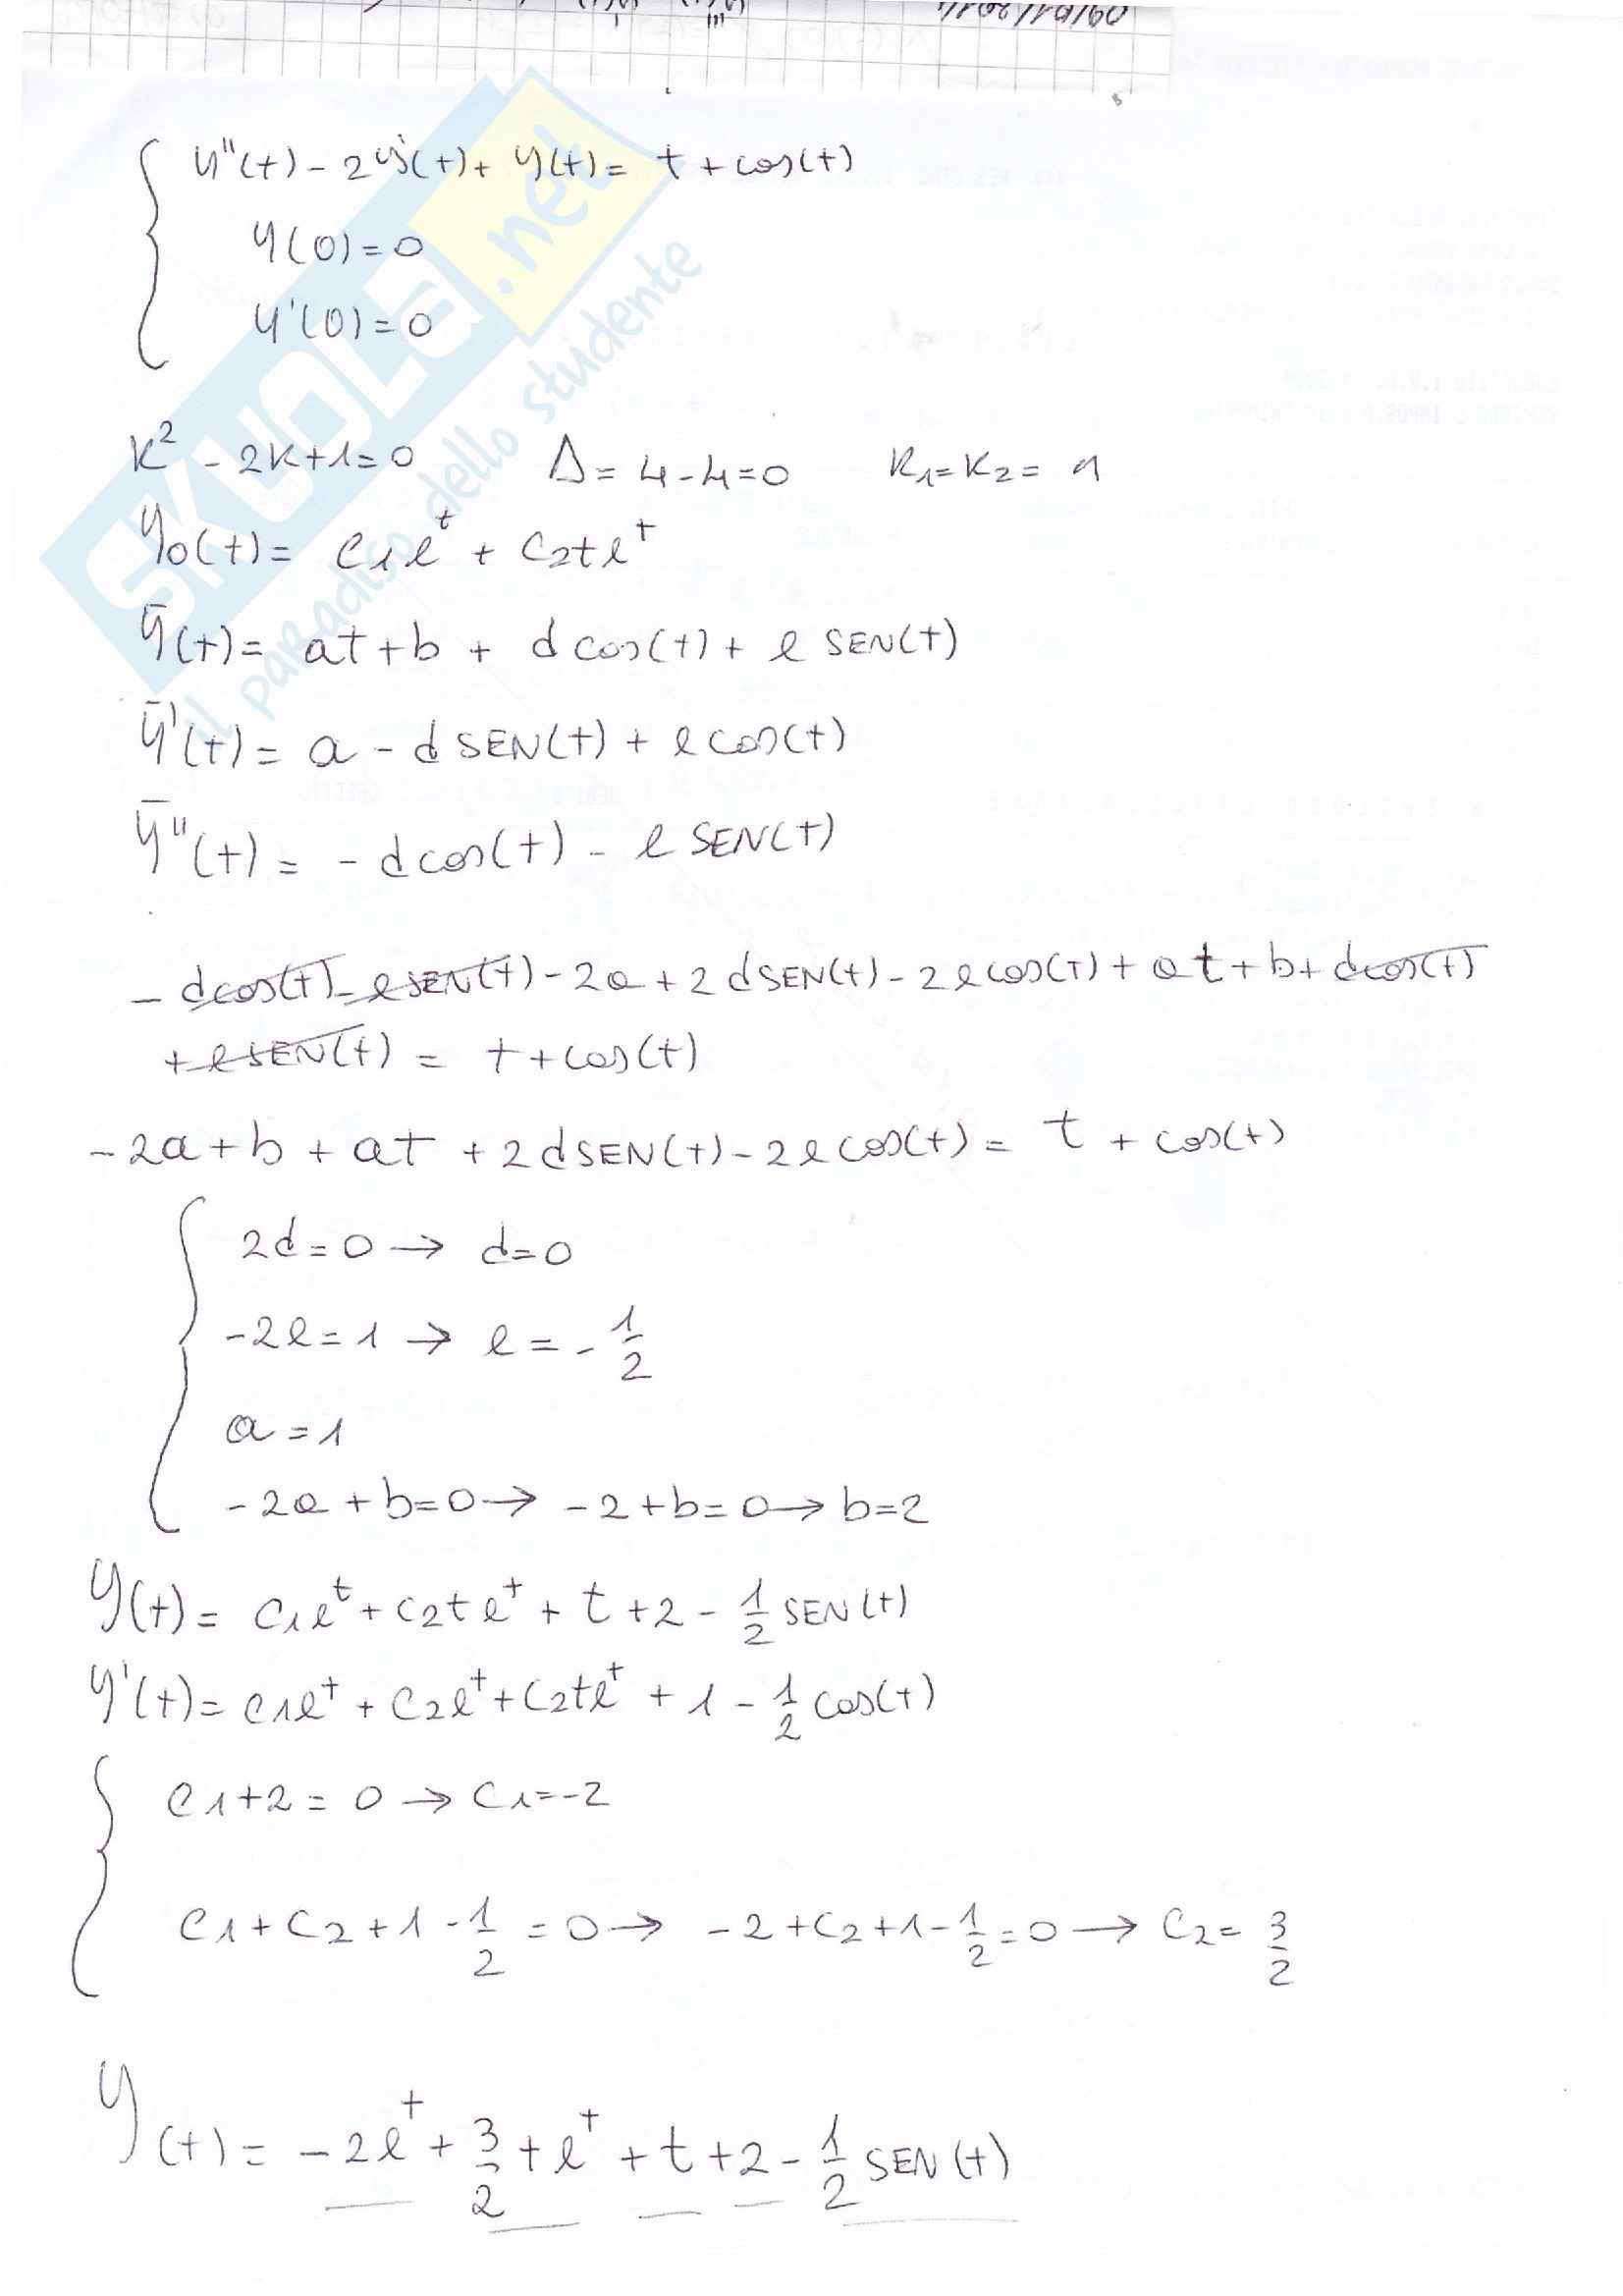 09/01/2014
y''(t) - 2y'(t) + y(t) = t + cos(t)
y(0) = 0
y'(0) = 0
K² - 2K + 1 = 0    Δ = 4 - 4 = 0    K₁ = K₂ = 1
y₀(t) = c₁e^t + c₂te^t
ȳ(t) = at + b + d cos(t) + e SEN(t)
ȳ'(t) = a - d SEN(t) + e cos(t)
ȳ''(t) = - d cos(t) - e SEN(t)
- d cos(t) - e SEN(t) - 2a + 2d SEN(t) - 2e cos(t) + at + b + d cos(t)
+ e SEN(t) = t + cos(t)
-2a + b + at + 2d SEN(t) - 2e cos(t) = t + cos(t)
2d = 0 → d = 0
-2e = 1 → e = - 1/2
a = 1
-2a + b = 0 → -2 + b = 0 → b = 2
y(t) = c₁e^t + c₂te^t + t + 2 - 1/2 SEN(t)
y'(t) = c₁e^t + c₂e^t + c₂te^t + 1 - 1/2 cos(t)
c₁ + 2 = 0 → c₁ = -2
c₁ + c₂ + 1 - 1/2 = 0 → -2 + c₂ + 1 - 1/2 = 0 → c₂ = 3/2
y(t) = -2e^t + 3/2 te^t + t + 2 - 1/2 SEN(t)
SKUOLA.net
il paradiso dello studente